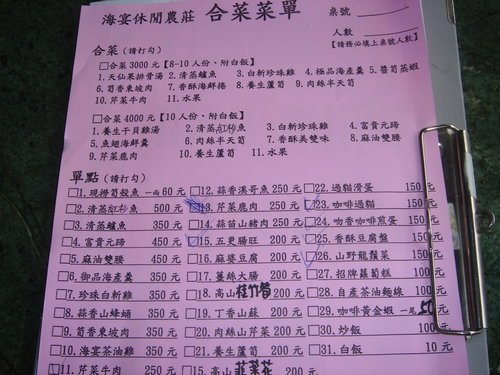 海宴休閒農莊 合菜菜單
桌號
人數
【請務必填上桌號人數】
合菜(請打勾)
□合菜3000元【8-10人份、附白飯】
1.天仙果排骨湯 2.清蒸鱸魚 3.白斬珍珠雞 4.極品海產羹 5.醬筍蒸蝦
6.筒香東坡肉 7.香酥海鮮捲 8.養生蘆筍 9.肉絲半天筍
10.芹菜牛肉 11.水果
□合菜4000元【10人份、附白飯】
1.養生干貝雞湯 2.清蒸紅魽魚 3.白斬珍珠雞 4.富貴元蹄
5.魚翅海鮮羹 6.肉絲半天筍 7.香酥美雙味 8.麻油雙腰
9.芹菜鹿肉 10.養生蘆筍 11.水果
單點(請打勾)
□1.現撈筍殼魚一兩60元 □12.蒜香溪哥魚 250元 □22.過貓滑蛋 150元
□2.清蒸紅魽魚 500元 □13.芹菜鹿肉 250元 □23.咖哩過貓 150元
□3.清蒸鱸魚 350元 □14.蒜苗山豬肉 250元 □24.吻香咖啡煎蛋 150元
□4.富貴元蹄 450元 □15.五更腸旺 200元 □25.香酥豆腐盤 150元
□5.麻油雙腰 450元 □16.麻婆豆腐 200元 □26.山野龍鬚菜 150元
□6.御品海產羹 350元 □17.薑絲大腸 200元 □27.招牌蘿蔔糕 100元
□7.珍珠白斬雞 350元 □18.高山桂竹筍 200元 □28.自產茶油麵線 100元
□8.蒜香山蜂蛹 350元 □19.丁香山蘇 200元 □29.咖啡黃金蝦一尾50元
□9.筒香東坡肉 350元 □20.肉絲山芹菜 200元 □30.炒飯 100元
□10.海宴茶油雞 350元 □21.養生蘆筍 200元 □31.白飯 10元
□11.芹菜牛肉 250元 □15.高山韭菜花 200元